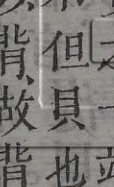 但貝也
背故背